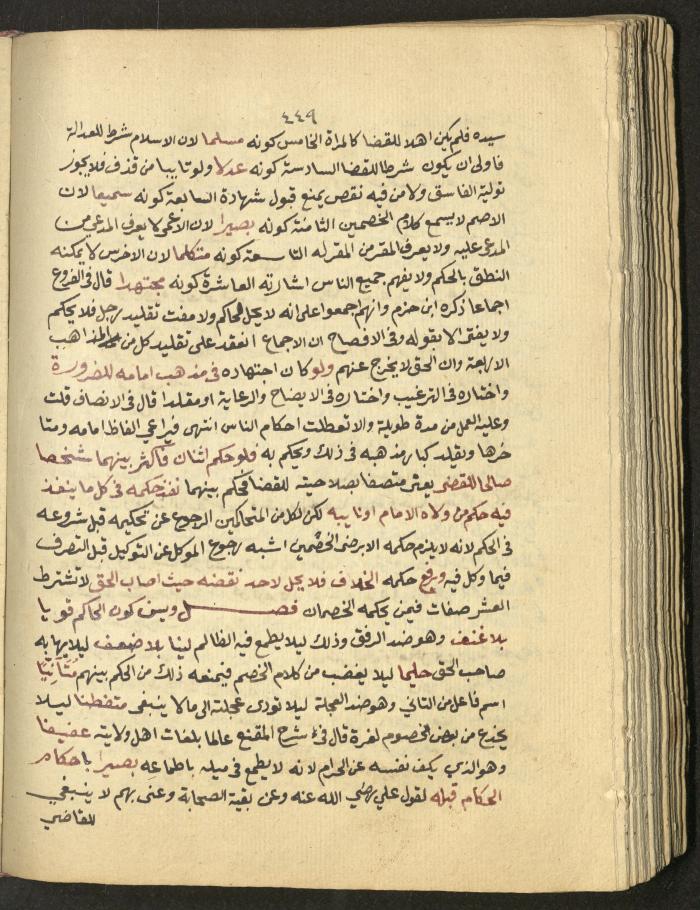 ٤٤٩
سيده فلم يكن اهلا للقضا كالمراة الخامس كونه مسلما لان الاسلام شرط للعدالة
فاولى ان يكون شرطا للقضا السادسة كونه عدلا ولو تايبا من قذف فلا يجوز
تولية الفاسق ولا من فيه نقص يمنع قبول شهادة السابعة كونه سميعا لان
الاصم لا يسمع كلام الخصمين الثامنة كونه بصيرا لان الاعمى لا يعرف المدعي من
المدعى عليه ولا يعرف المقر من المقر له التاسعة كونه متكلما لان الاخرس لا يمكنه
النطق بالحكم ولا يفهم جميع الناس اشارته العاشرة كونه مجتهدا قال في الفروع
اجماعا ذكره ابن حزم وانهم اجمعوا على انه لا يحل لحاكم ولا مفت تقليد رجل فلا يحكم
ولا يفتى الا بقوله وفي الافصاح ان الاجماع انعقد على تقليد كل من المذاهب
الاربعة وان الحق لا يخرج عنهم ولو كان اجتهاده في مذهب امامه للضرورة
واختاره في الترغيب واختاره في الايضاح والرعاية او مقلدا قال في الانصاف قلت
وعليه العمل من مدة طويلة والا تعطلت احكام الناس انتهى فيراعي الفاظ امامه ومتا
خرها ويقلد كبار مذهبه في ذلك ويحكم به فلو حكم اثنان فاكثر بينهما شخصا
صالحا للقضى يعني متصفا بصلاحيته للقضا فحكم بينهما نفذ حكمه في كل ما ينفذ
فيه حكم من ولاه الامام او نايبه لكن لكل من المتحاكمين الرجوع عن تحكيمه قبل شروعه
في الحكم لانه لا يلزم حكمه الا برضى الخصمين اشبه رجوع الموكل عن التوكيل قبل التصرف
فيما وكل فيه ورفع حكمه الخلاف فلا يحل لاحد نقضه حيث اصاب الحق لا تشترط
العشر صفات فيمن يحكمه الخصمان فصل ويسن كون الحاكم قويا
بلا عنف وهو ضد الرفق وذلك ليلا يطمع فيه الظالم لينا بلا ضعف ليلا يهابه
صاحب الحق حليما ليلا يغضب من كلام الخصم فيمنعه ذلك من الحكم بينهم مُتَأَنِّيًا
اسم فاعل من التاني وهو ضد العجلة ليلا تودي عجلته الى ما لا ينبغى متفطنا ليلا
يخدع من بعض الخصوم لغرة قال في شرح المقنع عالما بلغات اهل ولايته عفيفا
وهو الذي يكف نفسه عن الحرام لانه لا يطمع في ميله باطماعه بصيرا باحكام
الحكام قبله لقول علي رضي الله عنه وعن بقية الصحابة وعنى بهم لا ينبغي
للقاضي